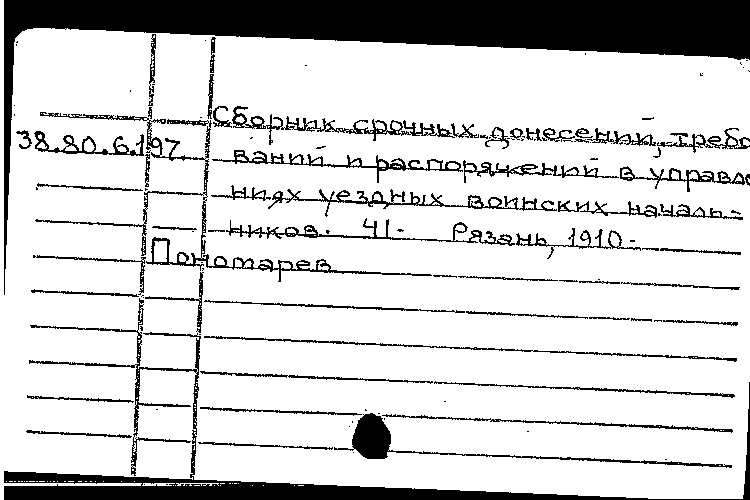 Сборник срочных донесений, требо
38.80.6.197.
ваний и распоряжений в управле
ниях уездных воинских началь-
ников. Ч1. Рязань, 1910-
Пономарев